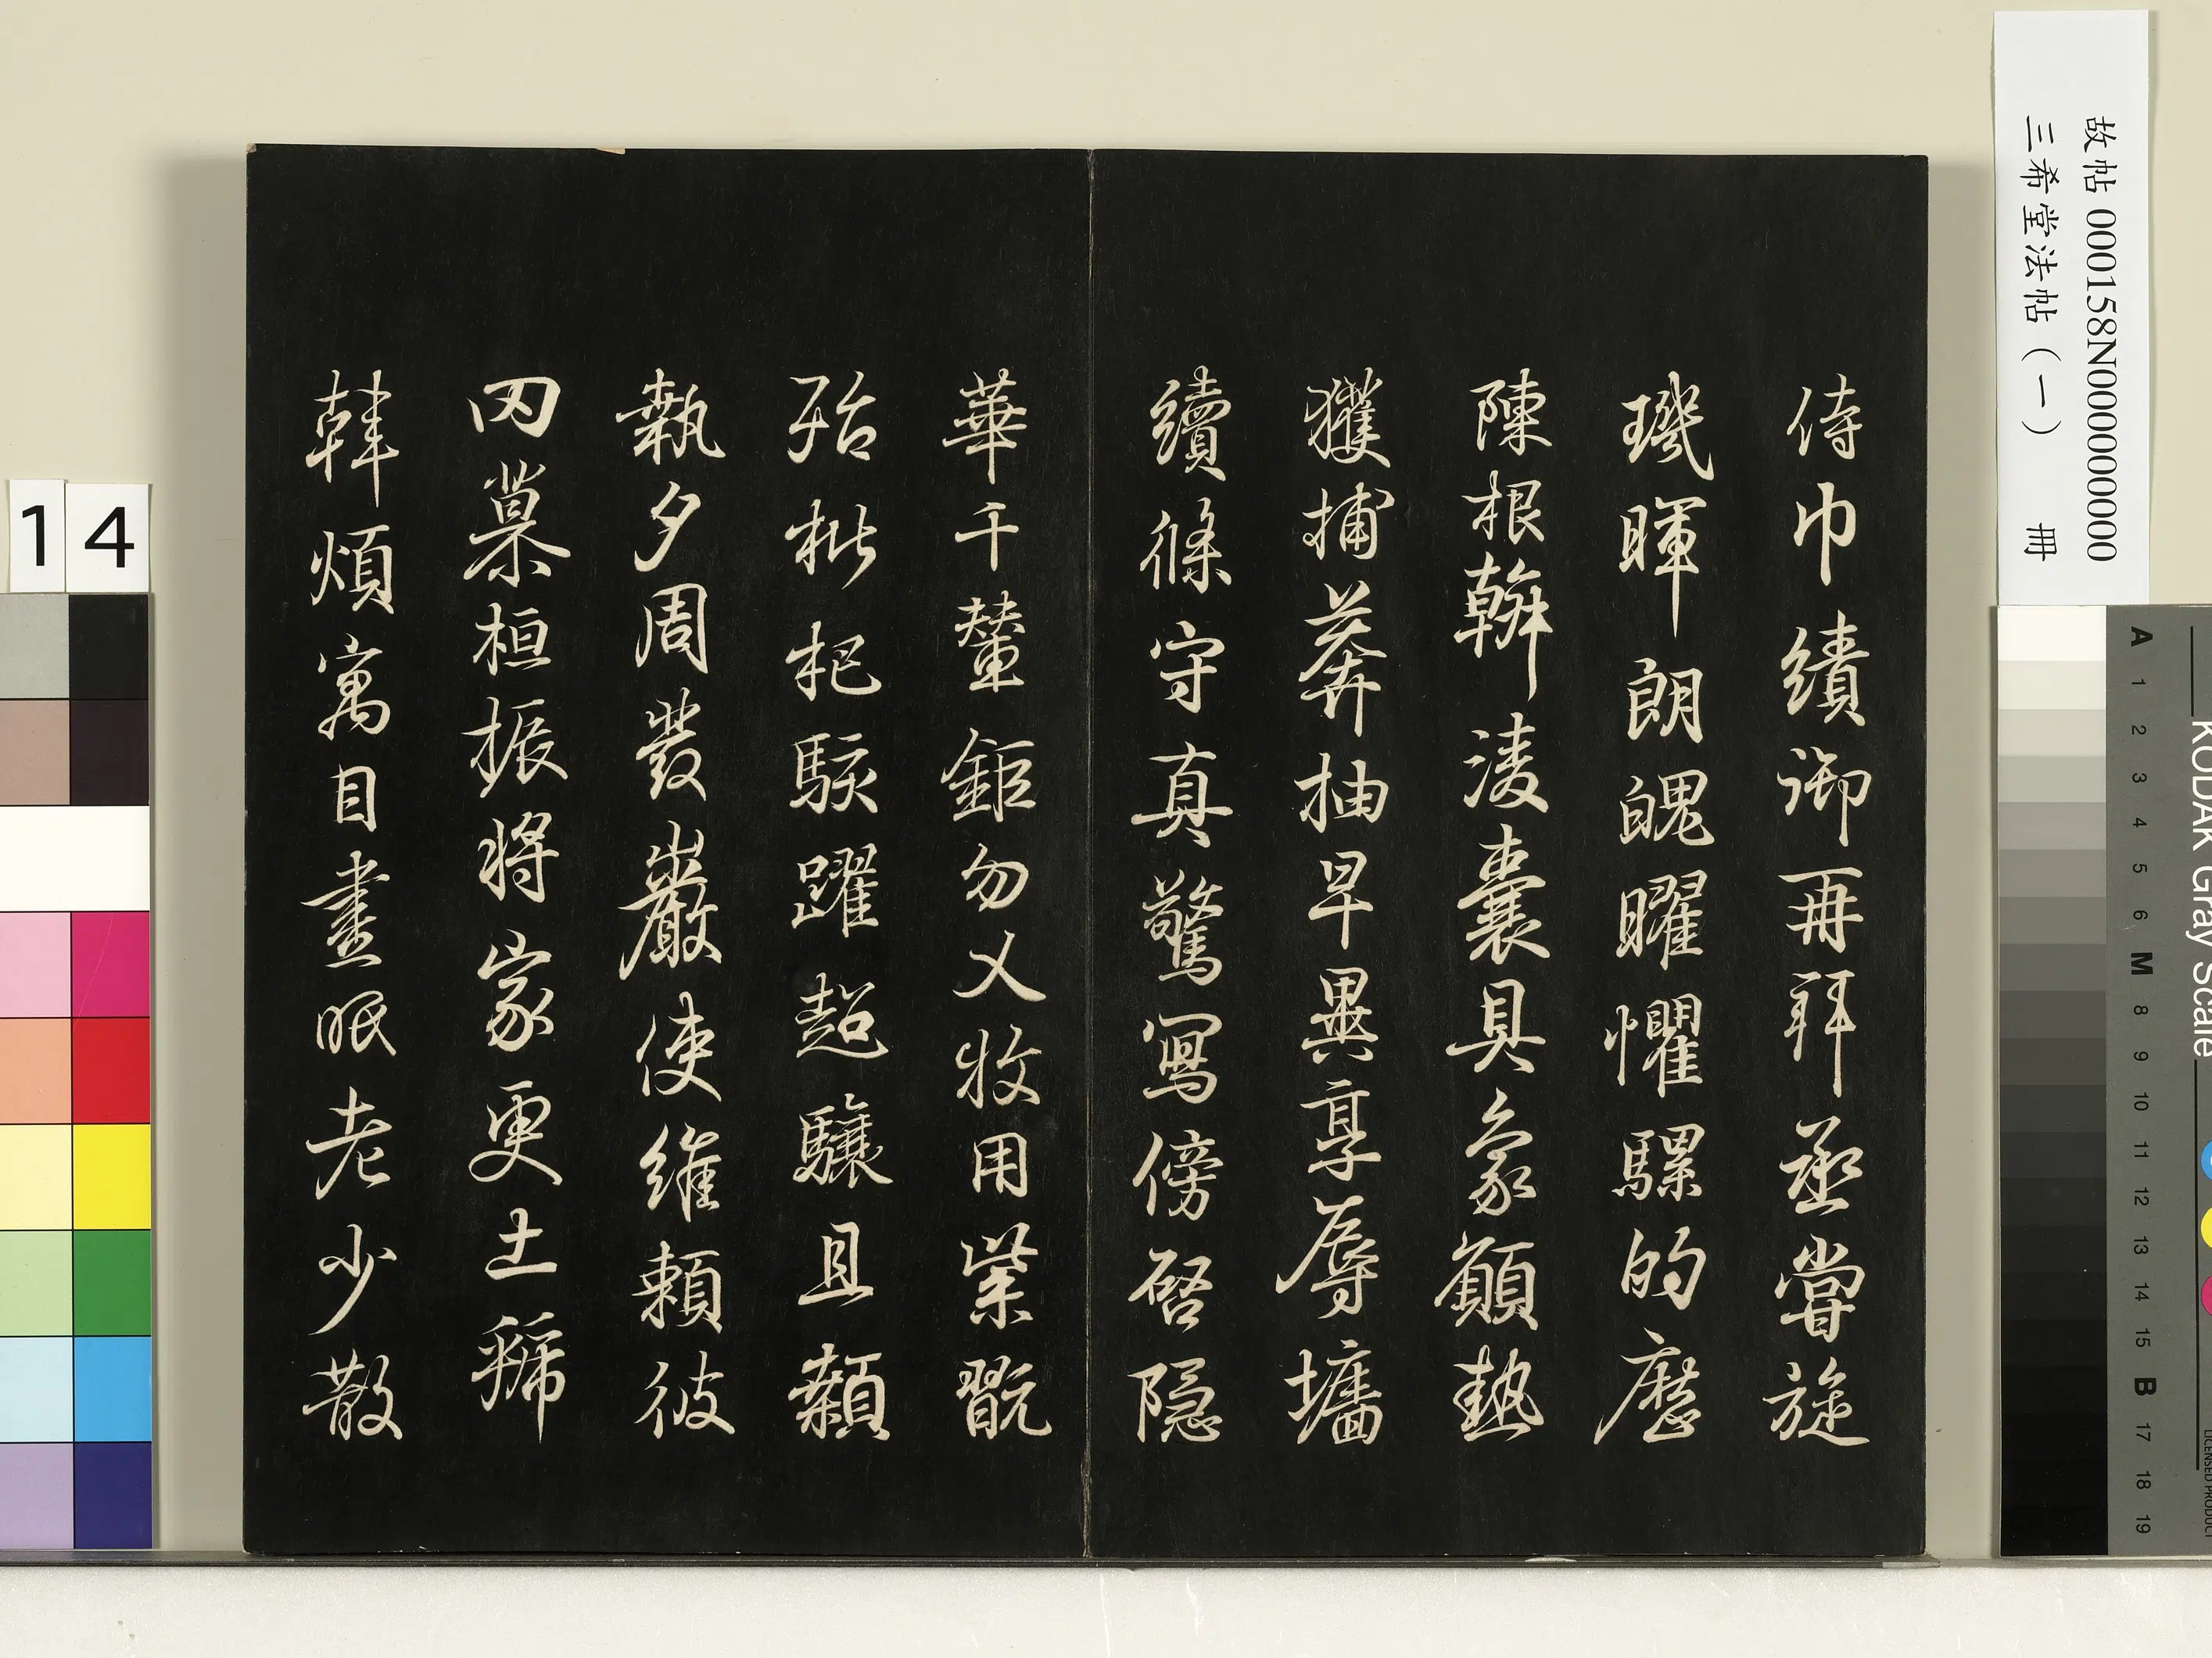 故帖 000158N000000000
三希堂法帖（一） 冊
侍巾績御再拜丞嘗旋
璣暉朗魄曜懼騾的歷
陳根斡淩囊具象願熱
獲捕莽抽早異享辱墉
續條守真驚寫傍啓隱
華千輦鉅勿乂牧用紫翫
殆枇杷駭躍超驤且顙
執夕周發巖使維賴彼
罔慕桓振將家更土號
韓煩寓目晝眠老少散
14
KODAK Gray Scale
A 1 2 3 4 5 6 M 8 9 10 11 12 13 14 15 B 17 18 19